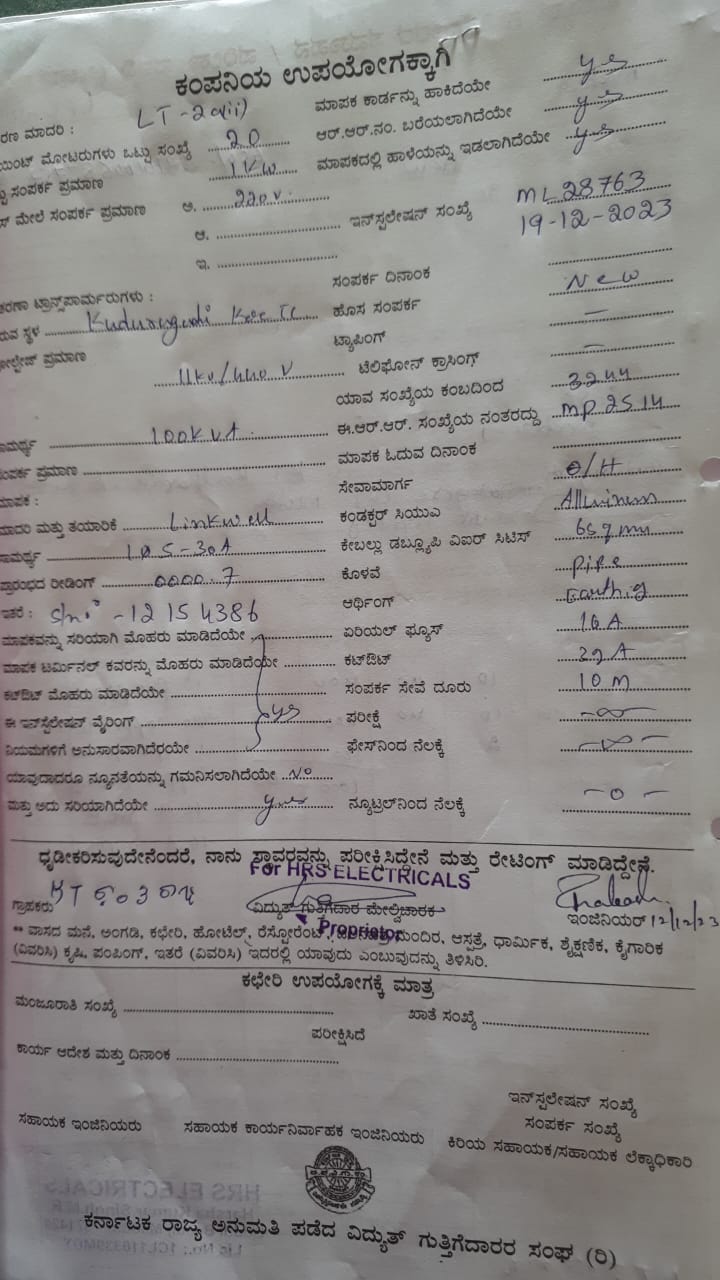 ಕಂಪನಿಯ ಉಪಯೋಗಕ್ಕಾಗಿ
ರಣ ಮಾದರಿ : LT-2a(ii) ಮಾಪಕ ಕಾರ್ಡನ್ನು ಹಾಕಿದೆಯೇ yes
ಯಿಂಟ್ ಮೋಟರುಗಳು ಒಟ್ಟು ಸಂಖ್ಯೆ 20 ಆರ್.ಆರ್.ನಂ. ಬರೆಯಲಾಗಿದೆಯೇ yes
ಟ್ಟು ಸಂಪರ್ಕ ಪ್ರಮಾಣ 1 KW ಮಾಪಕದಲ್ಲಿ ಹಾಳೆಯನ್ನು ಇಡಲಾಗಿದೆಯೇ yes
ಸ್ ಮೇಲೆ ಸಂಪರ್ಕ ಪ್ರಮಾಣ ಅ. 220 V
ಆ. ಇನ್‌ಸ್ಪಲೇಷನ್ ಸಂಖ್ಯೆ ML 28763
19-12-2023
ಇ.
ಸಂಪರ್ಕ ದಿನಾಂಕ
ಕರಣಾ ಟ್ರಾನ್ಸ್‌ಪಾರ್ಮರುಗಳು : ಹೊಸ ಸಂಪರ್ಕ New
ರುವ ಸ್ಥಳ ಟ್ಯಾಪಿಂಗ್ –
ೋಲ್ಟೇಜ್ ಪ್ರಮಾಣ 11kv/440 V ಟೆಲಿಫೋನ್ ಕ್ರಾಸಿಂಗ್ –
ಯಾವ ಸಂಖ್ಯೆಯ ಕಂಬದಿಂದ 3244
ಾಮರ್ಥ್ಯ 100KVA ಈ.ಆರ್.ಆರ್. ಸಂಖ್ಯೆಯ ನಂತರದ್ದು MP 2514
ಂಪರ್ಕ ಪ್ರಮಾಣ ಮಾಪಕ ಓದುವ ದಿನಾಂಕ
ಮಾಪಕ : ಸೇವಾಮಾರ್ಗ O/H
ಮಾದರಿ ಮತ್ತು ತಯಾರಿಕೆ Linkwell ಕಂಡಕ್ಟರ್ ಸಿಯುವಿ
ಾಮರ್ಥ್ಯ 10 5-30A ಕೇಬಲ್ಲು ಡಬ್ಲ್ಯೂಪಿ ವಿಐರ್ ಸಿಟಿಸ್ 6sqmm
ಪ್ರಾರಂಭದ ರೀಡಿಂಗ್ 0000.7 ಕೊಳವೆ Pipe
ಇತರೆ : s/no - 12154386 ಆರ್ಥಿಂಗ್
ಮಾಪಕವನ್ನು ಸರಿಯಾಗಿ ಮೊಹರು ಮಾಡಿದೆಯೇ ಏರಿಯಲ್ ಫ್ಯೂಸ್ 16A
ಮಾಪಕ ಟರ್ಮಿನಲ್ ಕವರನ್ನು ಮೊಹರು ಮಾಡಿದೆಯೇ ಕಟ್‌ಔಟ್ 32A
ಕಟ್‌ಔಟ್ ಮೊಹರು ಮಾಡಿದೆಯೇ ಸಂಪರ್ಕ ಸೇವೆ ದೂರು 10 M
ಈ ಇನ್‌ಸ್ಟಲೇಷನ್ ವೈರಿಂಗ್ yes ಪರೀಕ್ಷೆ
ನಿಯಮಗಳಿಗೆ ಅನುಸಾರವಾಗಿದೆರಯೇ ಫೇಸ್‌ನಿಂದ ನೆಲಕ್ಕೆ
ಯಾವುದಾದರೂ ನ್ಯೂನತೆಯನ್ನು ಗಮನಿಸಲಾಗಿದೆಯೇ No
ಮತ್ತು ಅದು ಸರಿಯಾಗಿದೆಯೇ yes ನ್ಯೂಟ್ರಲ್‌ನಿಂದ ನೆಲಕ್ಕೆ – 0 –
ಧೃಡೀಕರಿಸುವುದೇನೆಂದರೆ, ನಾನು ಸ್ಥಾವರವನ್ನು ಪರೀಕ್ಷಿಸಿದ್ದೇನೆ ಮತ್ತು ರೇಟಿಂಗ್ ಮಾಡಿದ್ದೇನೆ.
For HRS ELECTRICALS
ಗ್ರಾಹಕರು ವಿದ್ಯುತ್ ಗುತ್ತಿಗೆದಾರ ಮೇಲ್ವಿಚಾರಕ ಇಂಜಿನಿಯರ್ 12/12/23
Proprietor
** ವಾಸದ ಮನೆ, ಅಂಗಡಿ, ಕಛೇರಿ, ಹೋಟೆಲ್, ರೆಸ್ಟೋರೆಂಟ್, ಮಂದಿರ, ಆಸ್ಪತ್ರೆ, ಧಾರ್ಮಿಕ, ಶೈಕ್ಷಣಿಕ, ಕೈಗಾರಿಕ
(ವಿವರಿಸಿ) ಕೃಷಿ, ಪಂಪಿಂಗ್, ಇತರೆ (ವಿವರಿಸಿ) ಇದರಲ್ಲಿ ಯಾವುದು ಎಂಬುವುದನ್ನು ತಿಳಿಸಿರಿ.
ಕಛೇರಿ ಉಪಯೋಗಕ್ಕೆ ಮಾತ್ರ
ಮಂಜೂರಾತಿ ಸಂಖ್ಯೆ ಖಾತೆ ಸಂಖ್ಯೆ
ಪರೀಕ್ಷಿಸಿದೆ
ಕಾರ್ಯ ಆದೇಶ ಮತ್ತು ದಿನಾಂಕ
ಇನ್‌ಸ್ಪಲೇಷನ್ ಸಂಖ್ಯೆ
ಸಂಪರ್ಕ ಸಂಖ್ಯೆ
ಸಹಾಯಕ ಇಂಜಿನಿಯರು ಸಹಾಯಕ ಕಾರ್ಯನಿರ್ವಾಹಕ ಇಂಜಿನಿಯರು ಕಿರಿಯ ಸಹಾಯಕ/ಸಹಾಯಕ ಲೆಕ್ಕಾಧಿಕಾರಿ
ಕರ್ನಾಟಕ ರಾಜ್ಯ ಅನುಮತಿ ಪಡೆದ ವಿದ್ಯುತ್ ಗುತ್ತಿಗೆದಾರರ ಸಂಘ (ರಿ)